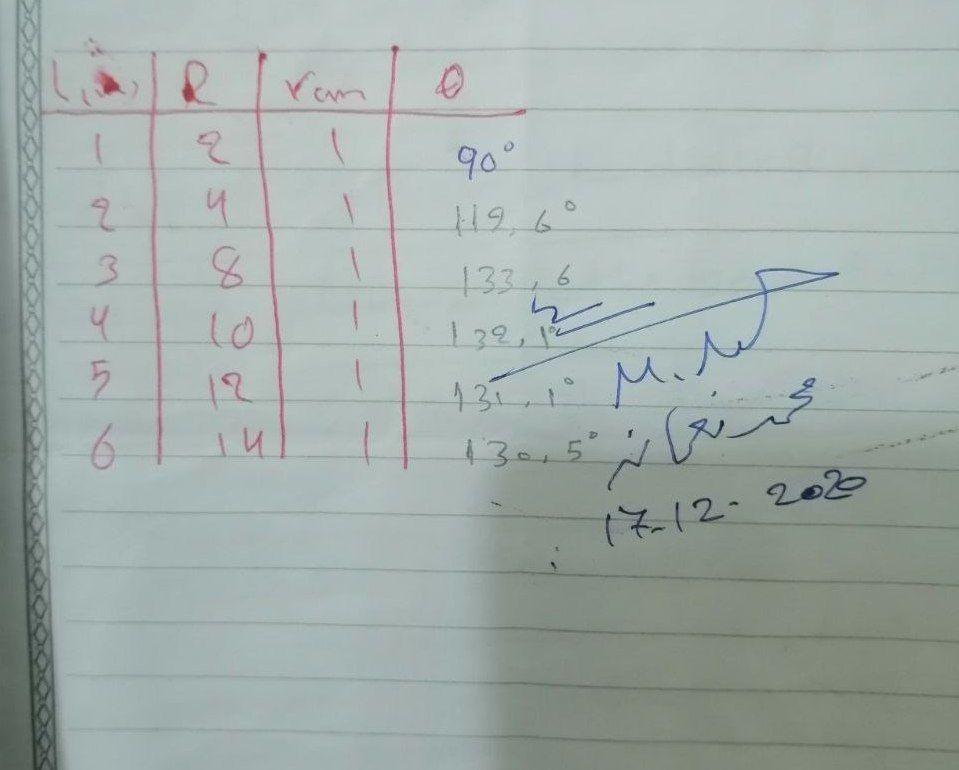 R r cm θ
1 2 1 90°
2 4 1 119,6°
3 8 1 133,6
4 10 1 132,1°
5 12 1 131,1°
6 14 1 130,5°
M.M
17-12-2020